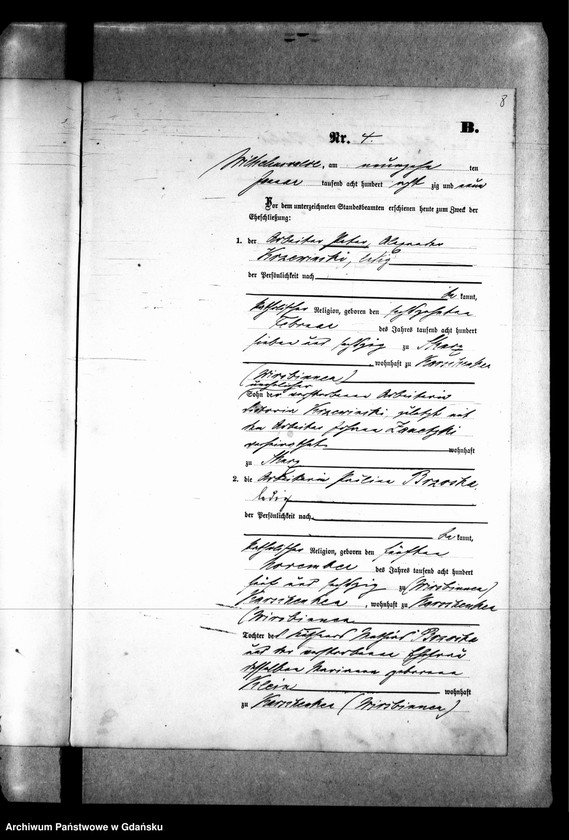 8
B.
Nr. 4.
Wilhelmswalde, am neunzehn ten
Januar tausend acht hundert acht zig und neun
Vor dem unterzeichneten Standesbeamten erschienen heute zum Zweck der
Eheschließung:
1. der Arbeiter Peter Alexander
Krzewinski, ledig
der Persönlichkeit nach
be kannt,
katholischer Religion, geboren den
Februar des Jahres tausend acht hundert
sieben und sechzig zu Skurz
, wohnhaft zu Karszenken
(Wirsbinnen)
unehelicher
Sohn der verstorbenen Arbeiterin
Viktoria Krzewinski, zuletzt mit
dem Arbeiter Johann
verheirathet wohnhaft
zu Skurz
2. die Arbeiterin Paulina Brzoska
ledig
der Persönlichkeit nach
be kannt,
katholischer Religion, geboren den fünften
November des Jahres tausend acht hundert
und sechzig zu (Wirsbinnen)
Karszenken, wohnhaft zu Karszenken
(Wirsbinnen
Tochter des Käthners Mathias Brzoska
und der verstorbenen Ehefrau
desselben Marianna geborene
Klein wohnhaft
zu Karszenken (Wirsbinnen)
Archiwum Państwowe w Gdańsku